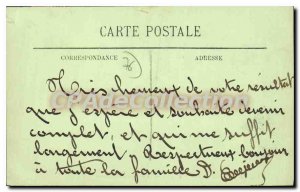 CARTE POSTALE
CORRESPONDANCE
ADRESSE
76
Très heureux de votre résultat
que j'espère et souhaite devenir
complet, et qui me suffit
largement. Respectueux bonjour
à toute la famille D.